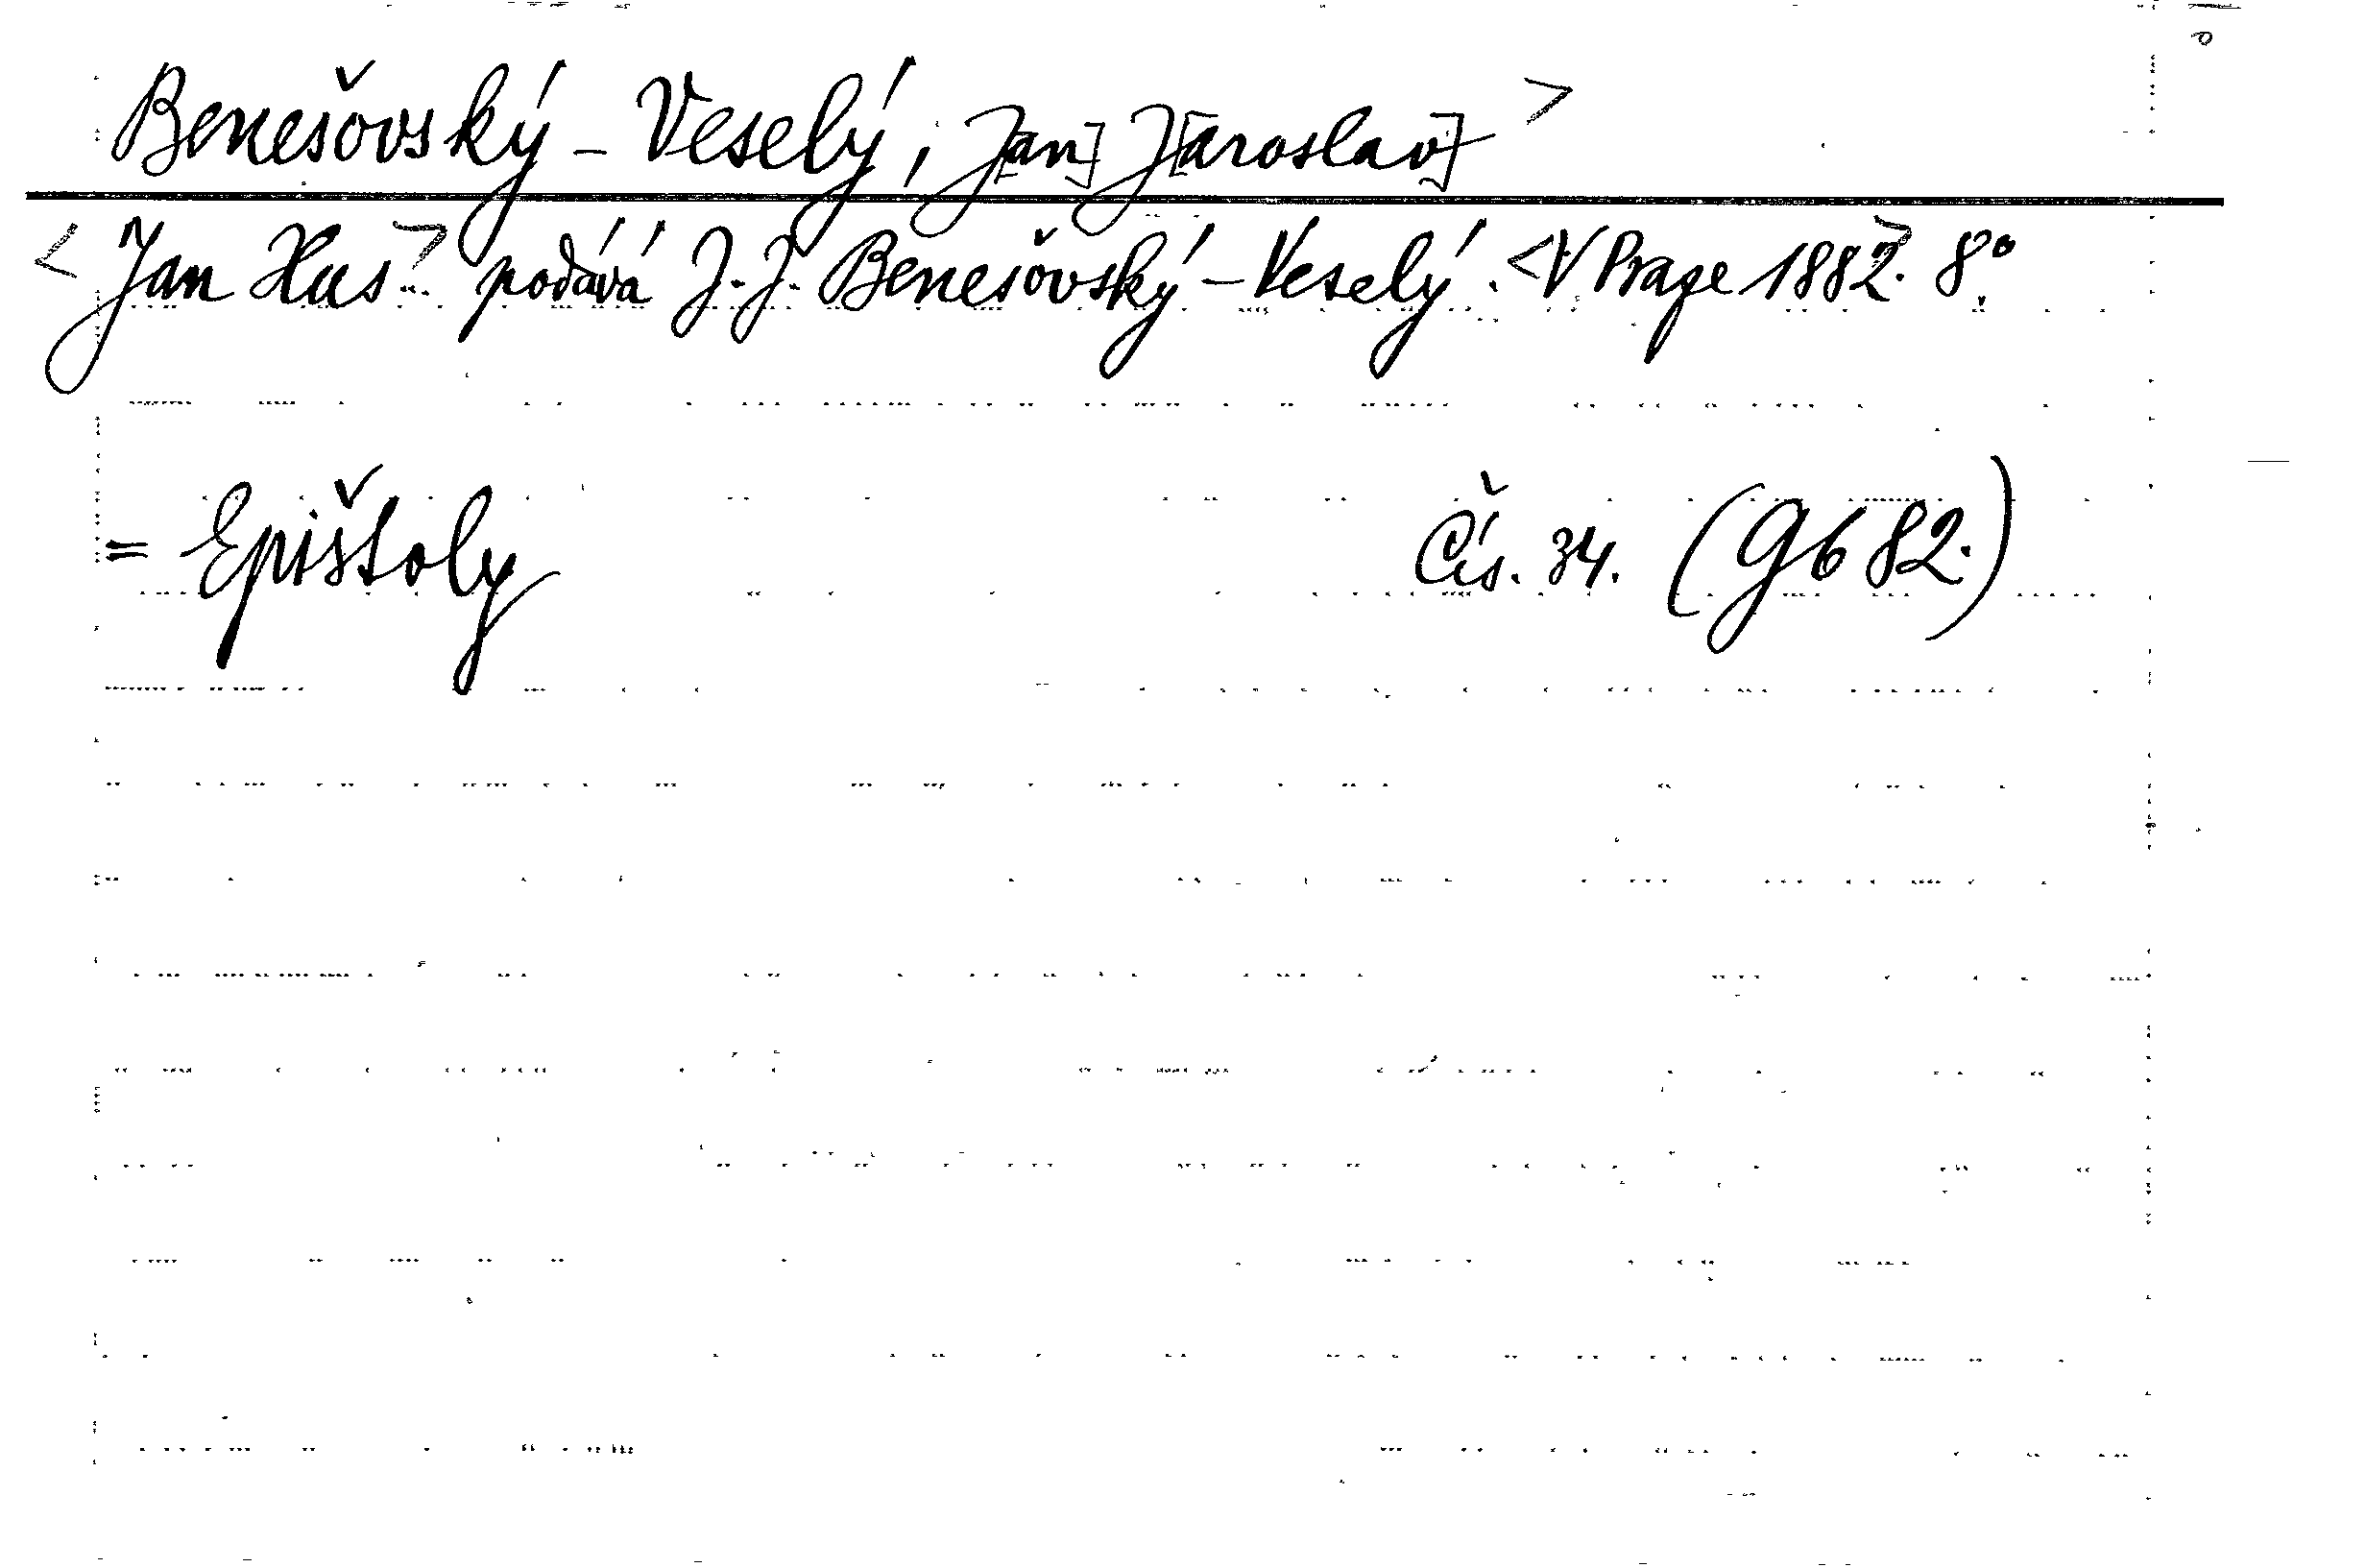 Benešovský - Veselý, J[an] J[aroslav] >
< Jan Hus > podává J. J. Benešovský - Veselý. < V Praze 1882 > . 8°.
= Epištoly Čís. 34. (Gb 82.)